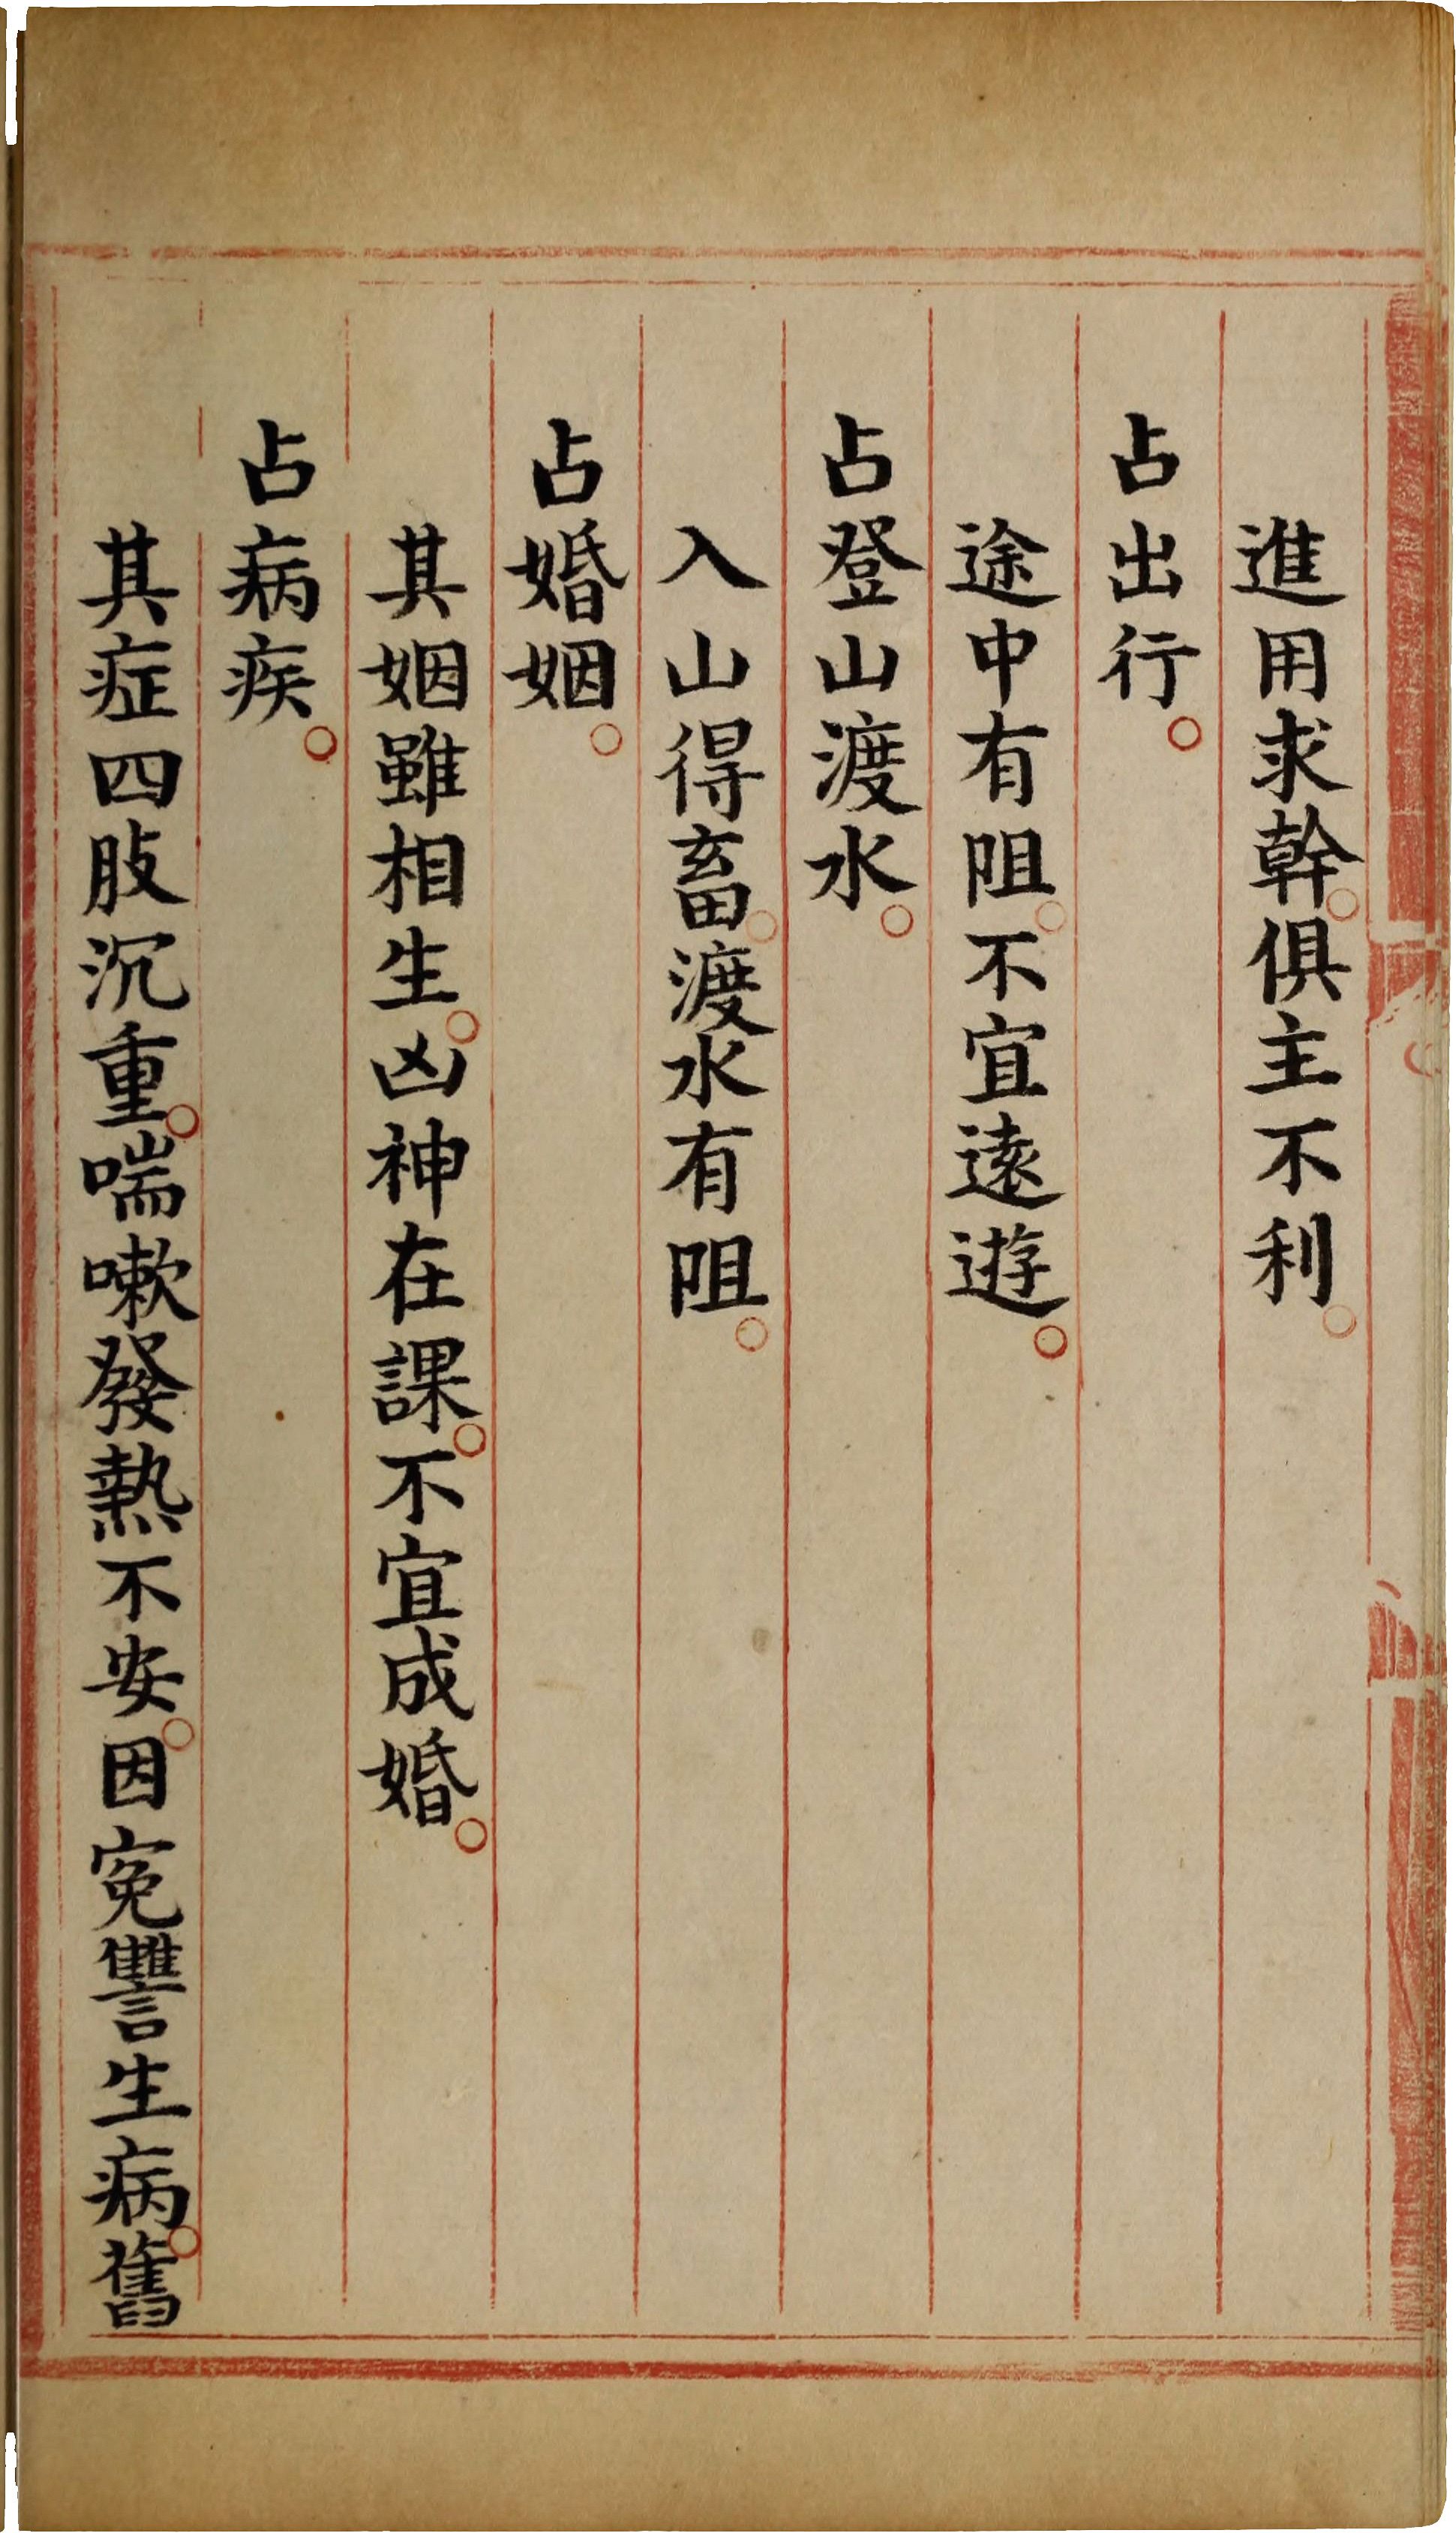 進用求幹。俱主不利。
占出行。
途中有阻。不宜遠遊。
占登山渡水。
入山得畜。渡水有阻。
占婚姻。
其姻雖相生。凶神在課。不宜成婚。
占病疾。
其症四肢沉重。喘嗽發熱不安。因冤讐生病。舊